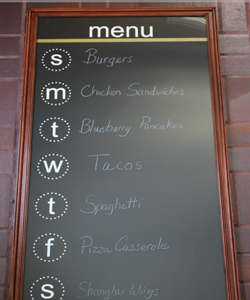 menu
s Burgers
m Chicken Sandwiches
t Blueberry Pancakes
w Tacos
t Spaghetti
f Pizza Casserole
s Shanghai Wings